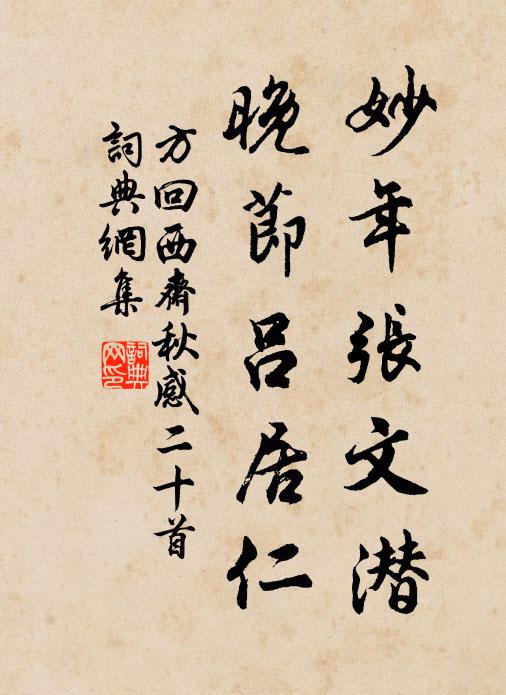 妙年張文潛
晚節呂居仁
方回西齋秋感二十首
詞典網集
詞典網印